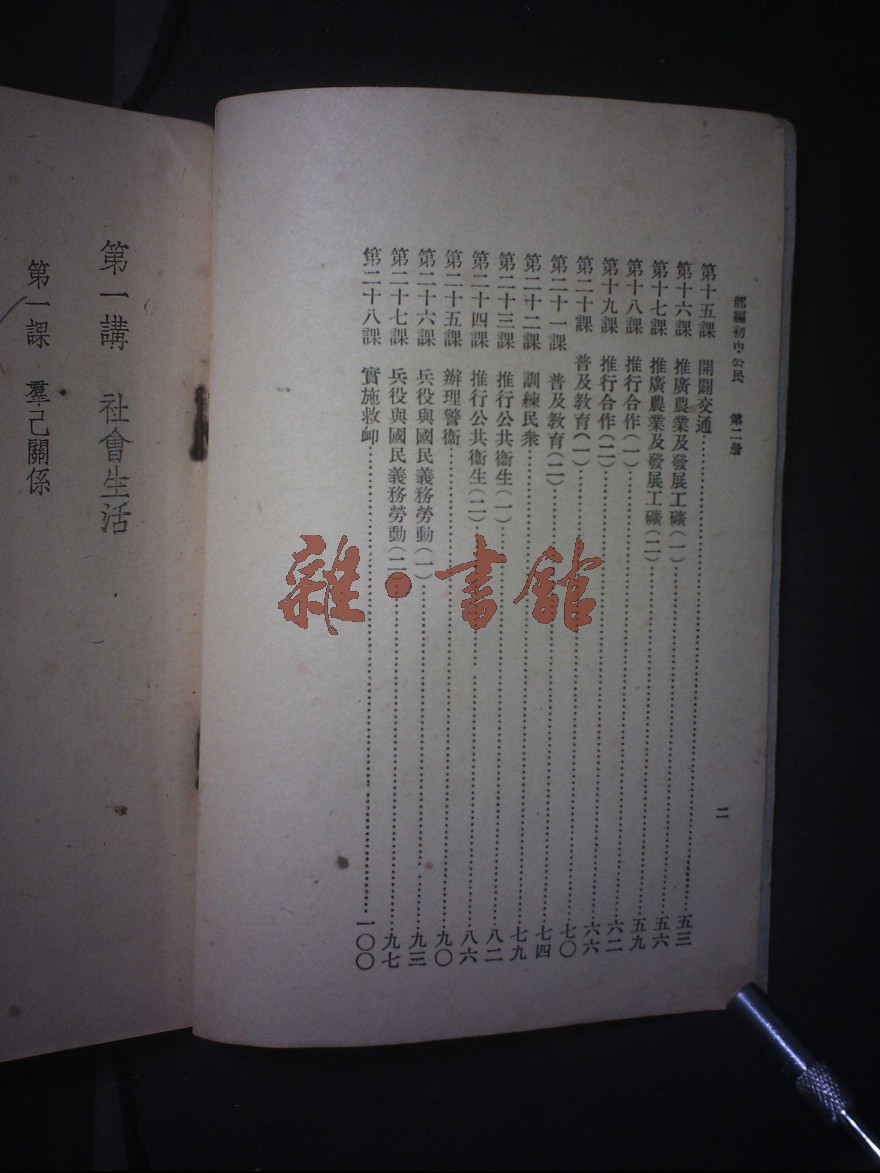 部編初中公民　第二册
二
第十五課　開闢交通……五三
第十六課　推廣農業及發展工礦(一)……五六
第十七課　推廣農業及發展工礦(二)……五九
第十八課　推行合作(一)……六二
第十九課　推行合作(二)……六六
第二十課　普及教育(一)……七〇
第二十一課　普及教育(二)……七四
第二十二課　訓練民衆……七九
第二十三課　推行公共衞生(一)……八二
第二十四課　推行公共衞生(二)……八六
第二十五課　辦理警衞……九〇
第二十六課　兵役與國民義務勞動(一)……九三
第二十七課　兵役與國民義務勞動(二)……九七
第二十八課　實施救卹……一〇〇
第一講　社會生活
第一課　羣己關係
雜·書館